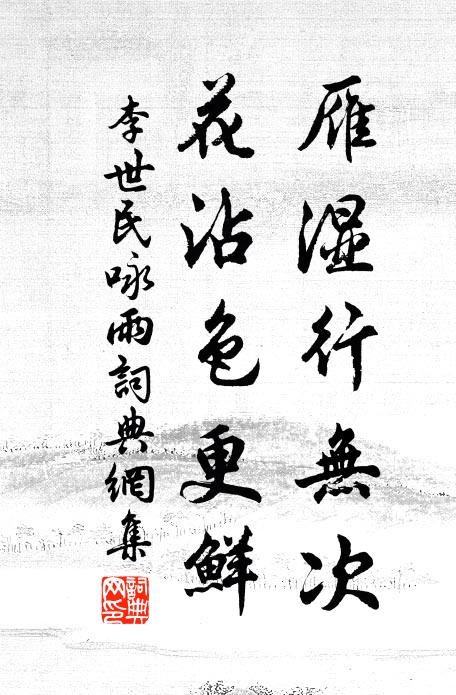 雁濕行無次
花沾色更鮮
李世民咏雨詞典網集
詞典網印